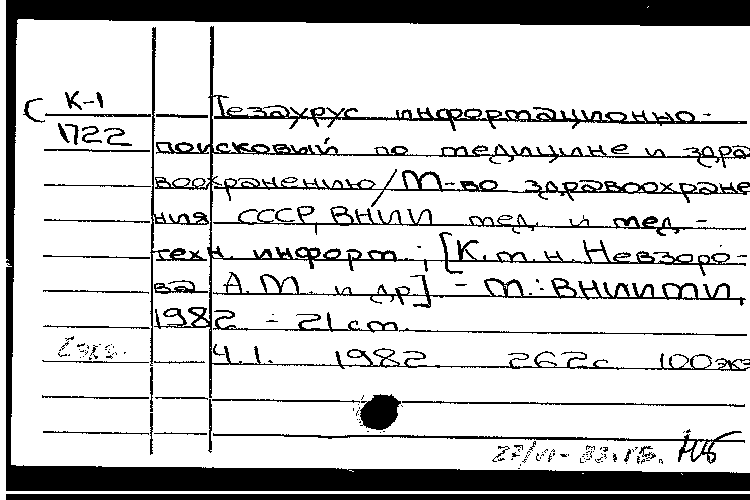 С К-1 Тезаурус информационно-
1722 поисковый по медицине и здра
воохранению/М-во здравоохране
ния СССР, ВНИИ мед. и мед.-
техн. информ.; [К.т.н. Невзоро-
ва А.М. и др.] - М.: ВНИИМИ,
1982 - 21 см.
2 экз. Ч.1. 1982. 262с 100экз